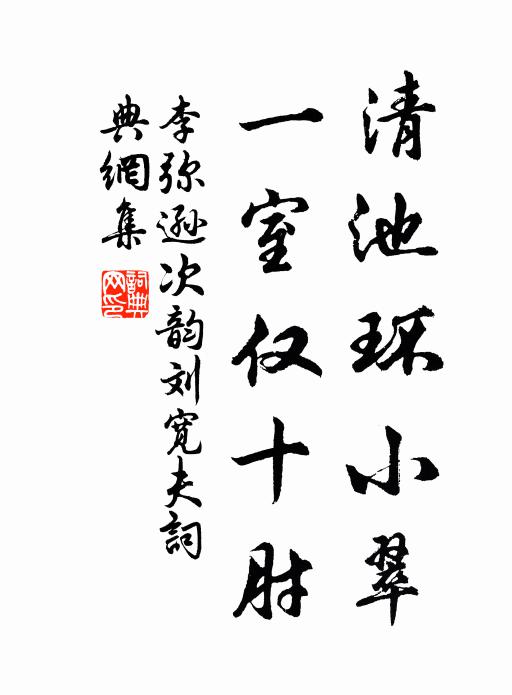 清池环小翠
一室仅十肘
李弥逊次韵刘宽夫詞
典網集
詞典網印